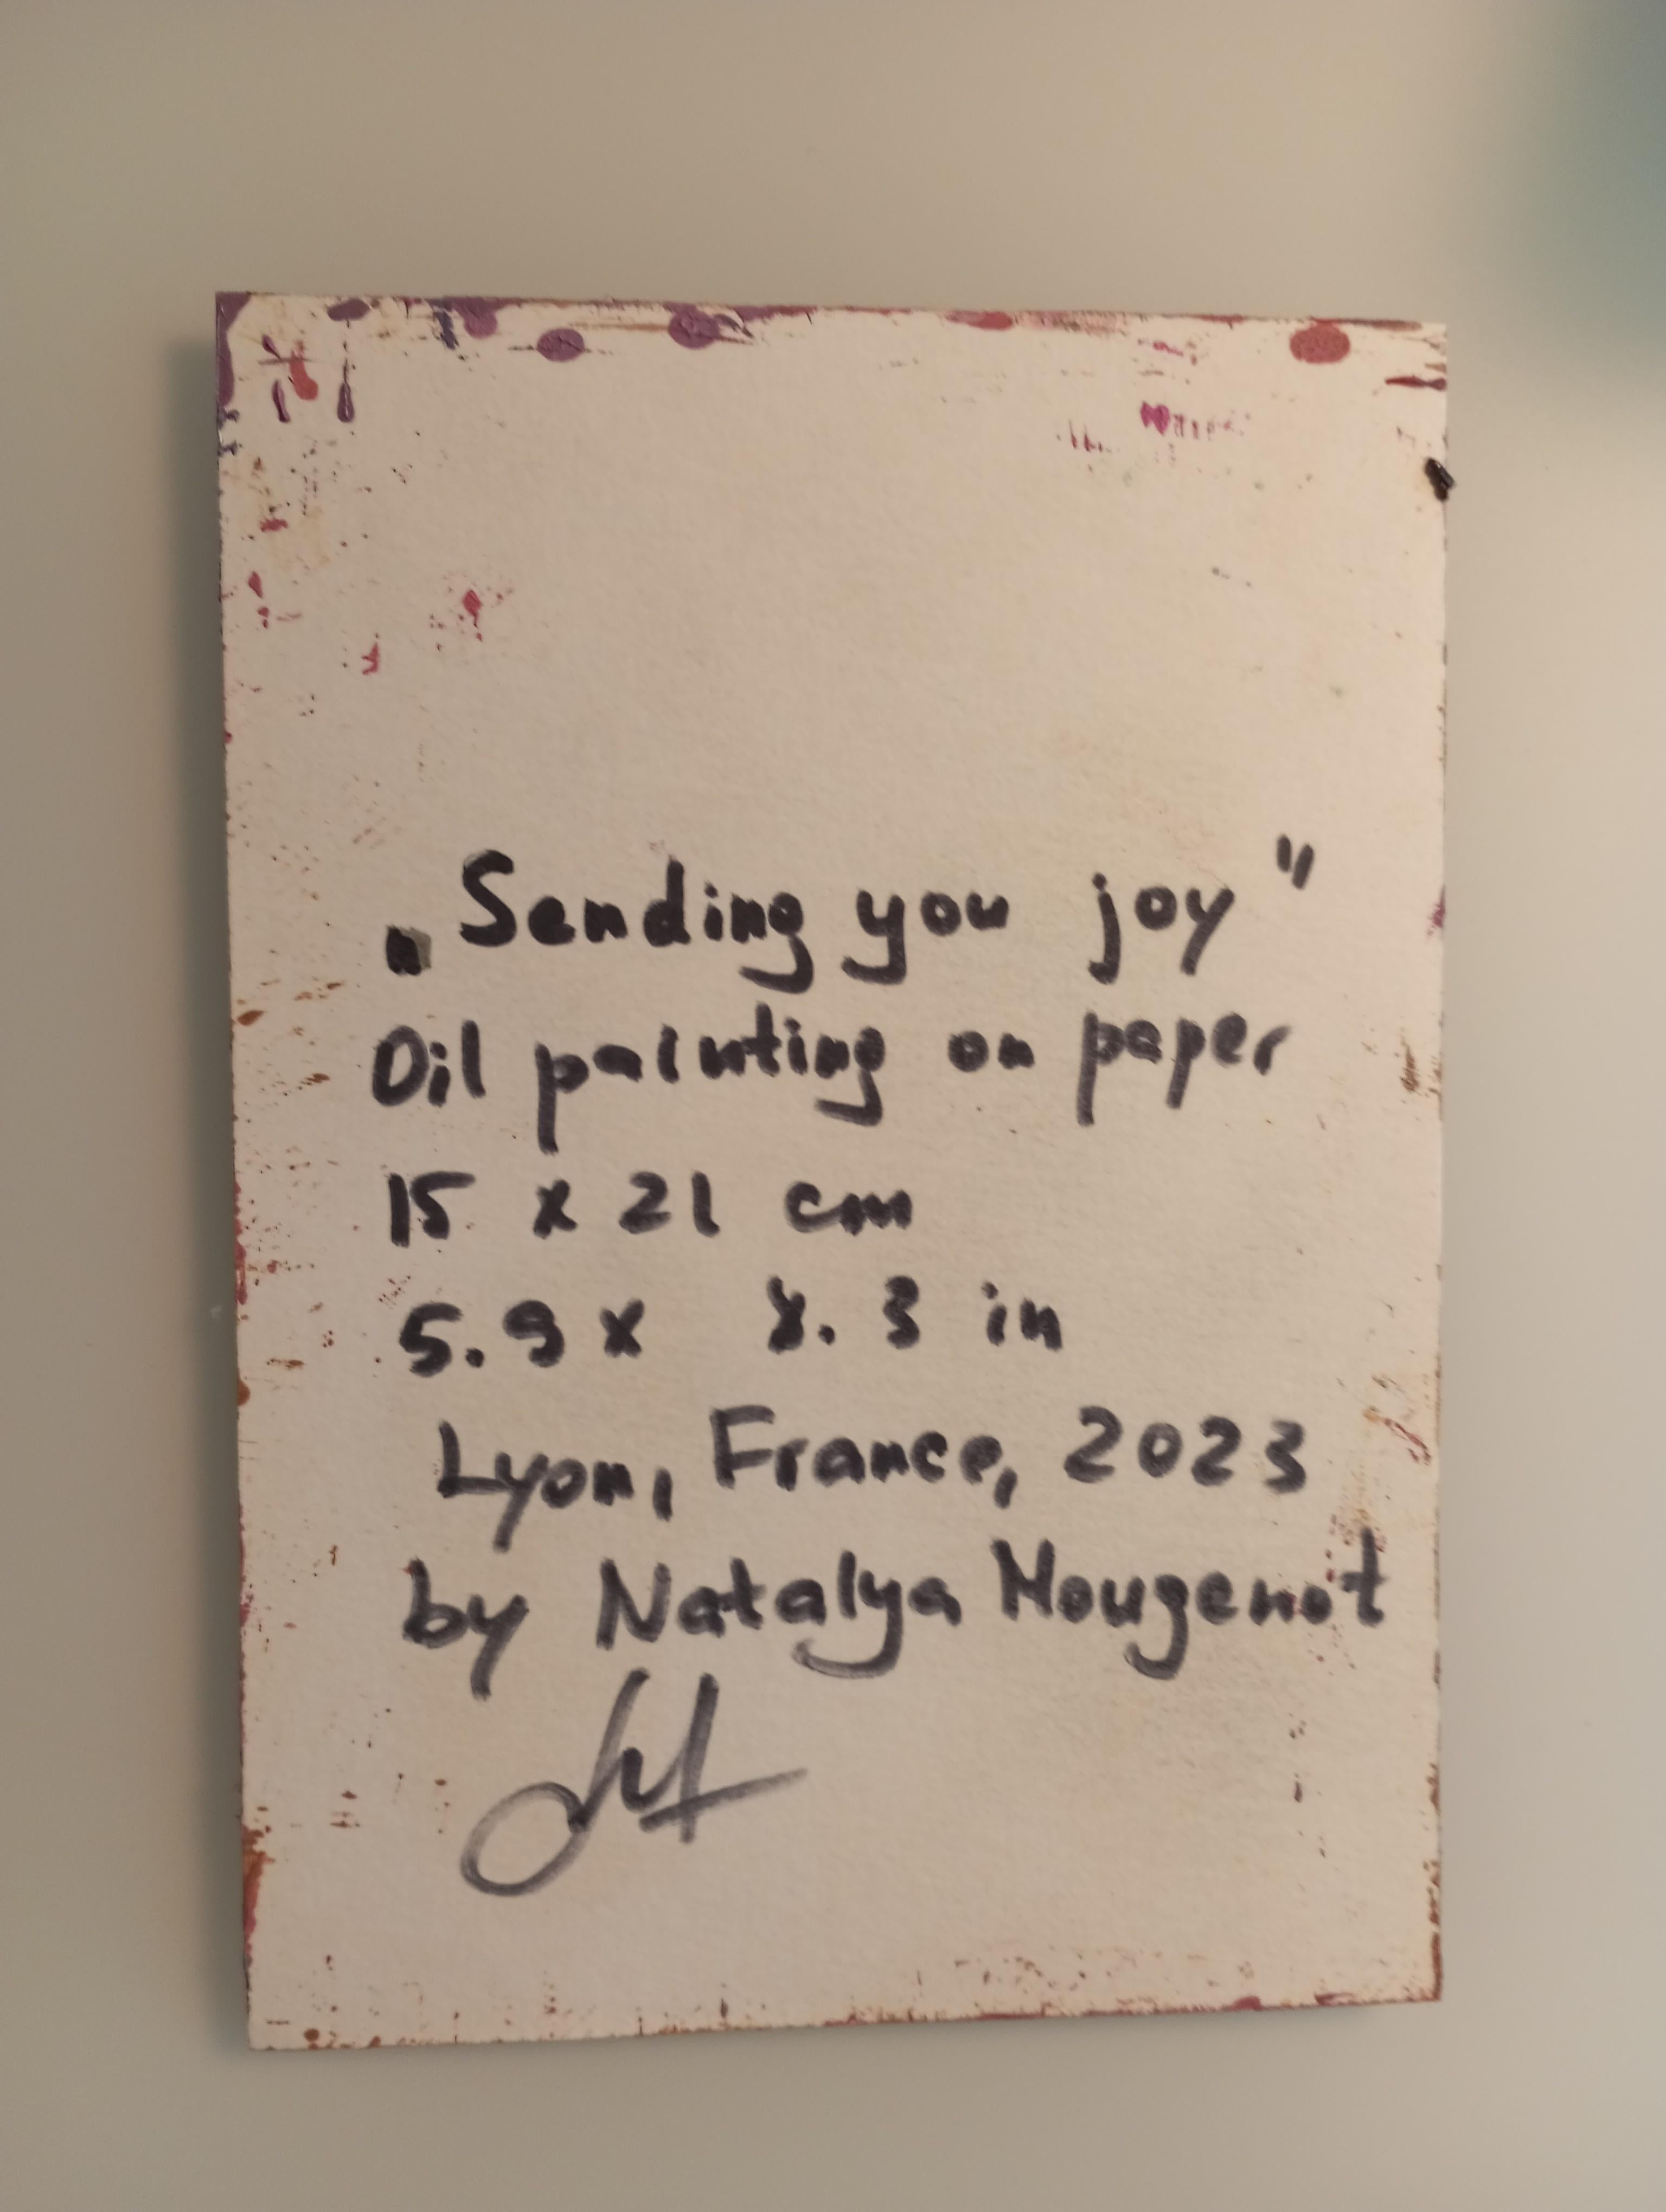 „Sending you joy"
Oil painting on paper
15 x 21 cm
5.9 x 8.3 in
Lyon, France, 2023
by Natalya Mougenot